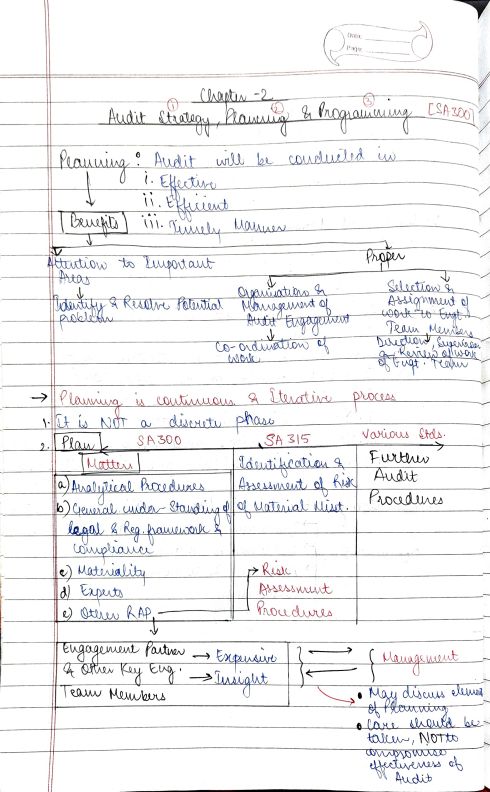 Date:
Page:
Chapter - 2
① ② ③
Audit Strategy, Planning & Programming [SA300]
Planning : Audit will be conducted in
i. Effective
ii. Efficient
Benefits iii. Timely Manner
Attention to Important
Areas
Identify & Resolve Potential
problem
Proper
Organisation &
Management of
Audit Engagement
Co-ordination of
work
Selection &
Assignment of
work to Engt.
Team Members
Direction, Supervision
& Review of work
of Engt. Team
→ Planning is continuous & Iterative process
1. It is NOT a discrete phase
2. Plan SA300 SA 315 Various Stds.
Matters
a) Analytical Procedures
b) General under-Standing of
legal & Reg. framework &
compliance
c) Materiality
d) Experts
e) Other RAP
Identification &
Assessment of Risk
of Material Misst.
Risk
Assessment
Procedures
Further
Audit
Procedures
Engagement Partner → Expensive
& Other Key Eng. → Insight
Team Members
Management
• May discuss elements
of Planning
• Care should be
taken, NOT to
compromise
effectiveness of
Audit